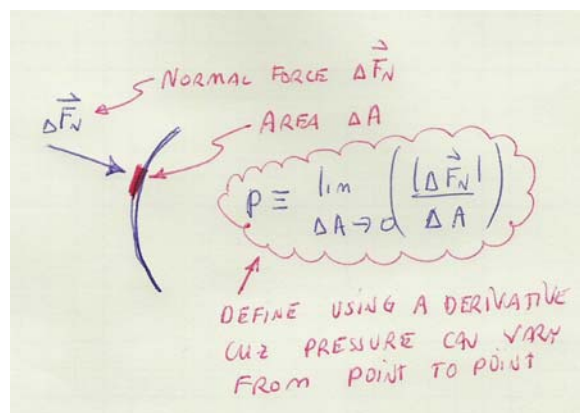 NORMAL FORCE ΔF⃗N
ΔF⃗N
AREA ΔA
P ≡ lim ΔA→0 (|ΔF⃗N| / ΔA)
DEFINE USING A DERIVATIVE
CUZ PRESSURE CAN VARY
FROM POINT TO POINT